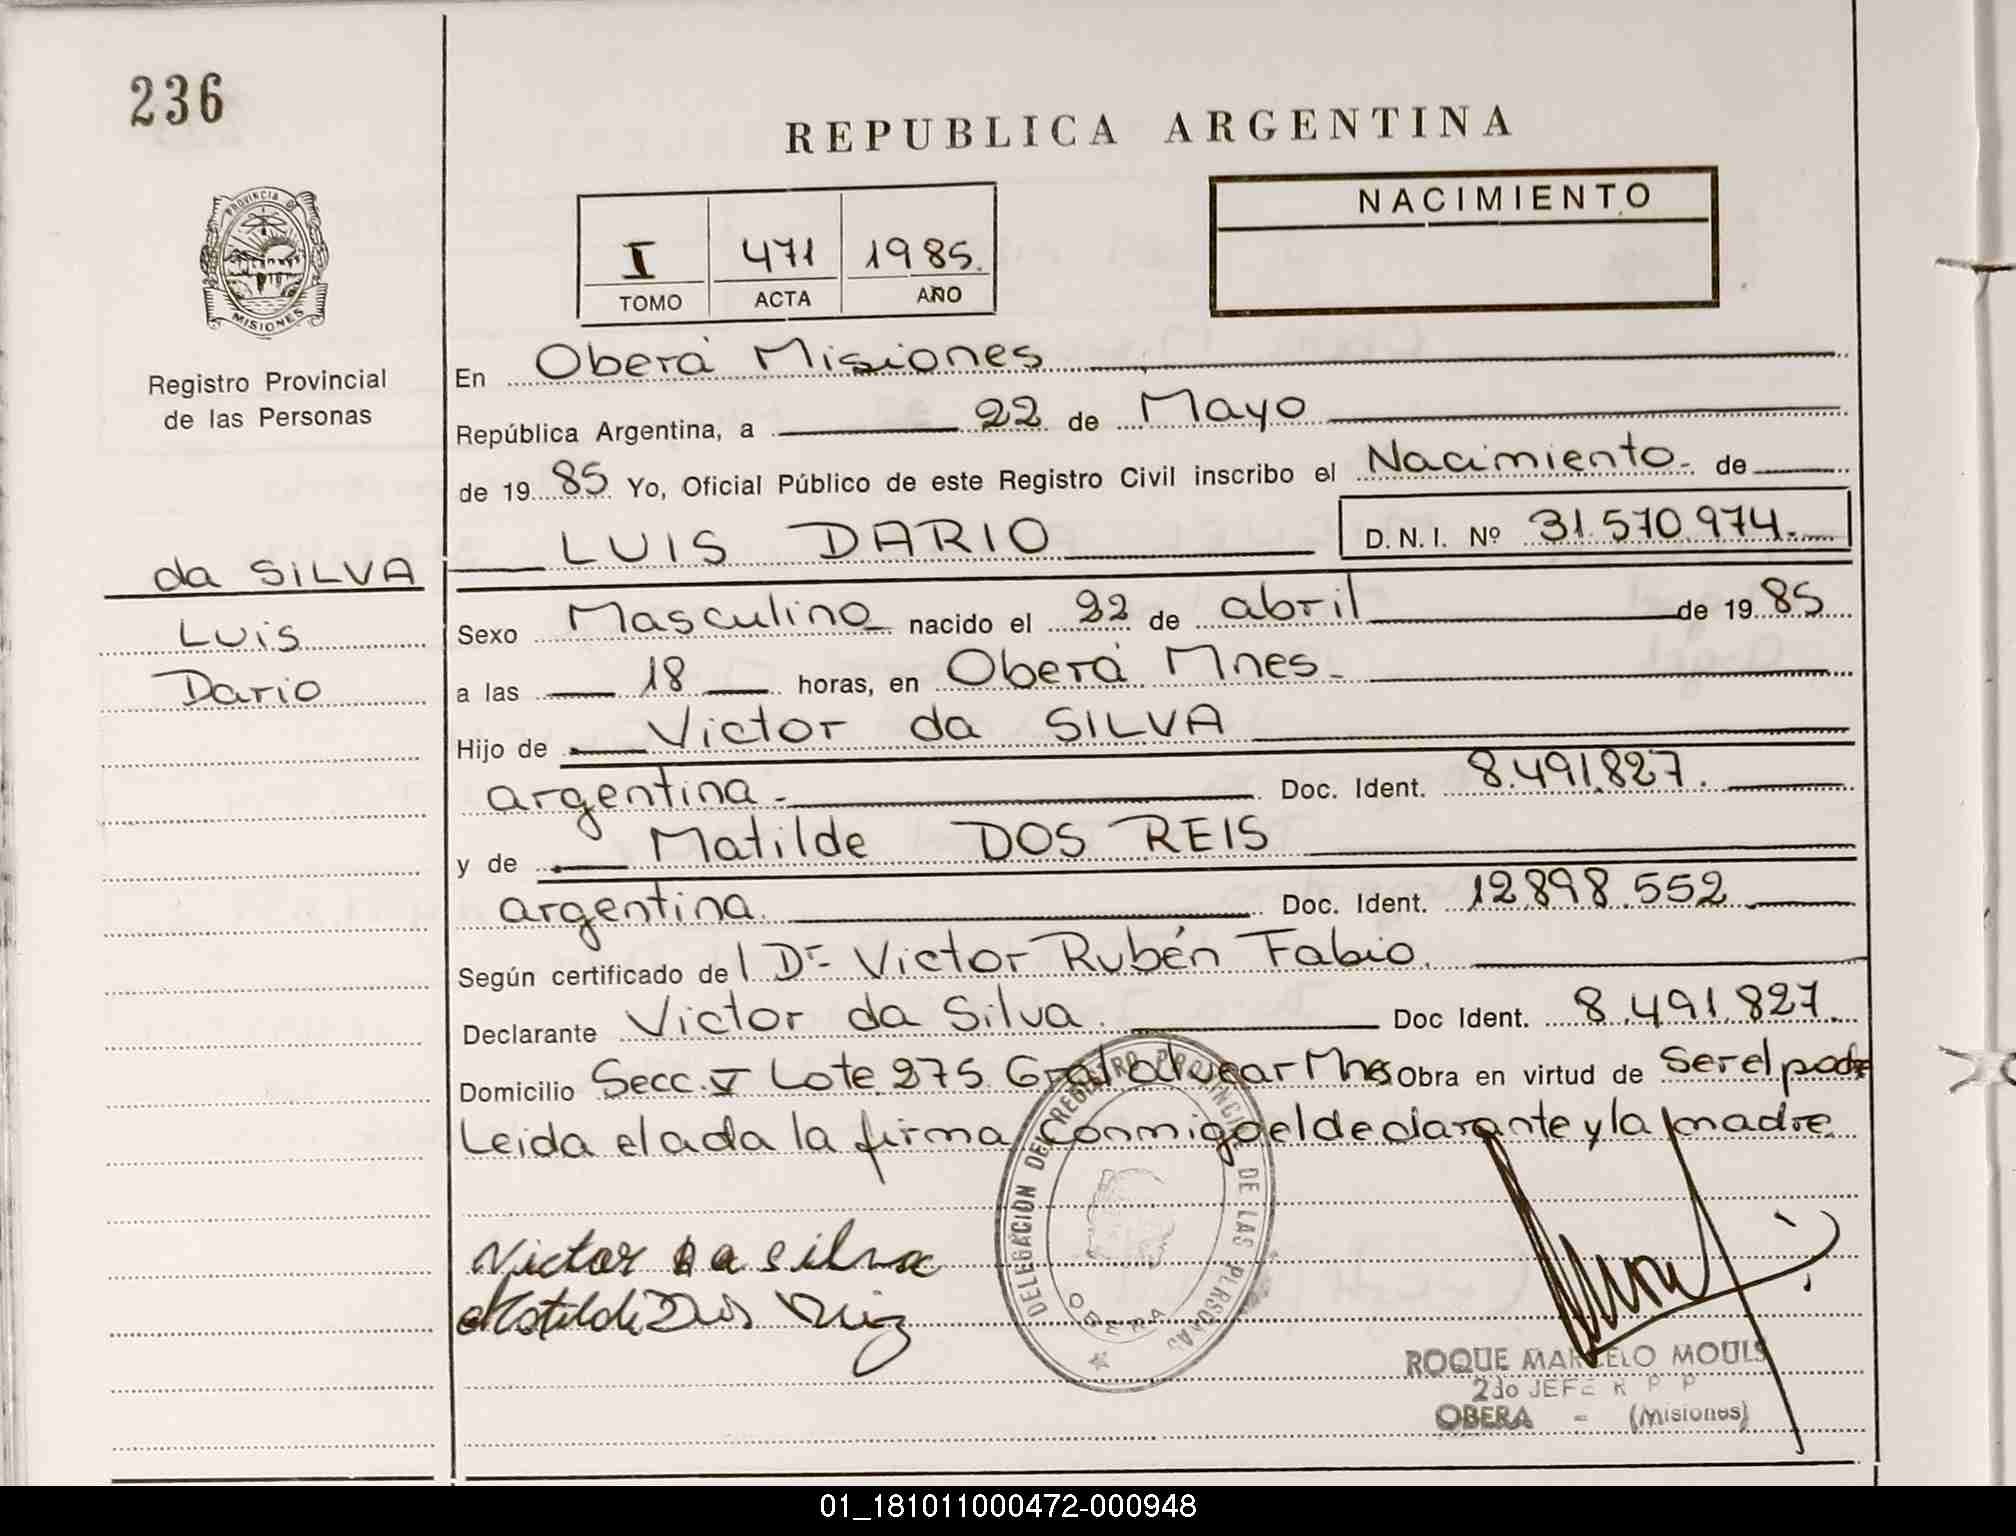 236
REPUBLICA ARGENTINA
PROVINCIA DE
MISIONES
Registro Provincial
de las Personas
I 471 1985.
TOMO ACTA AÑO
NACIMIENTO
En Oberá Misiones
República Argentina, a 22 de Mayo
de 19 85 Yo, Oficial Público de este Registro Civil inscribo el Nacimiento- de
LUIS DARIO D. N. I. Nº 31.570.974.-
da SILVA
Luis
Dario
Sexo Masculino nacido el 22 de abril de 19 85
a las 18 horas, en Oberá Mnes-
Hijo de Victor da SILVA
argentina- Doc. Ident. 8.491.827.
y de Matilde DOS REIS
argentina. Doc. Ident. 12.898.552
Según certificado del Dr- Victor Rubén Fabio.
Declarante Victor da Silva. Doc Ident. 8.491.827.
Domicilio Secc. V Lote 275 Gral alvear Mnes Obra en virtud de ser el padre
Leida el acta la firma conmigo el declarante y la madre
Victor da silva
Matilde Dos
DELEGACION DEL REGISTRO PROVINCIAL DE LAS PERSONAS
OBERA
ROQUE MARCELO MOULS
2do JEFE R P P
OBERA - (Misiones)
01_181011000472-000948